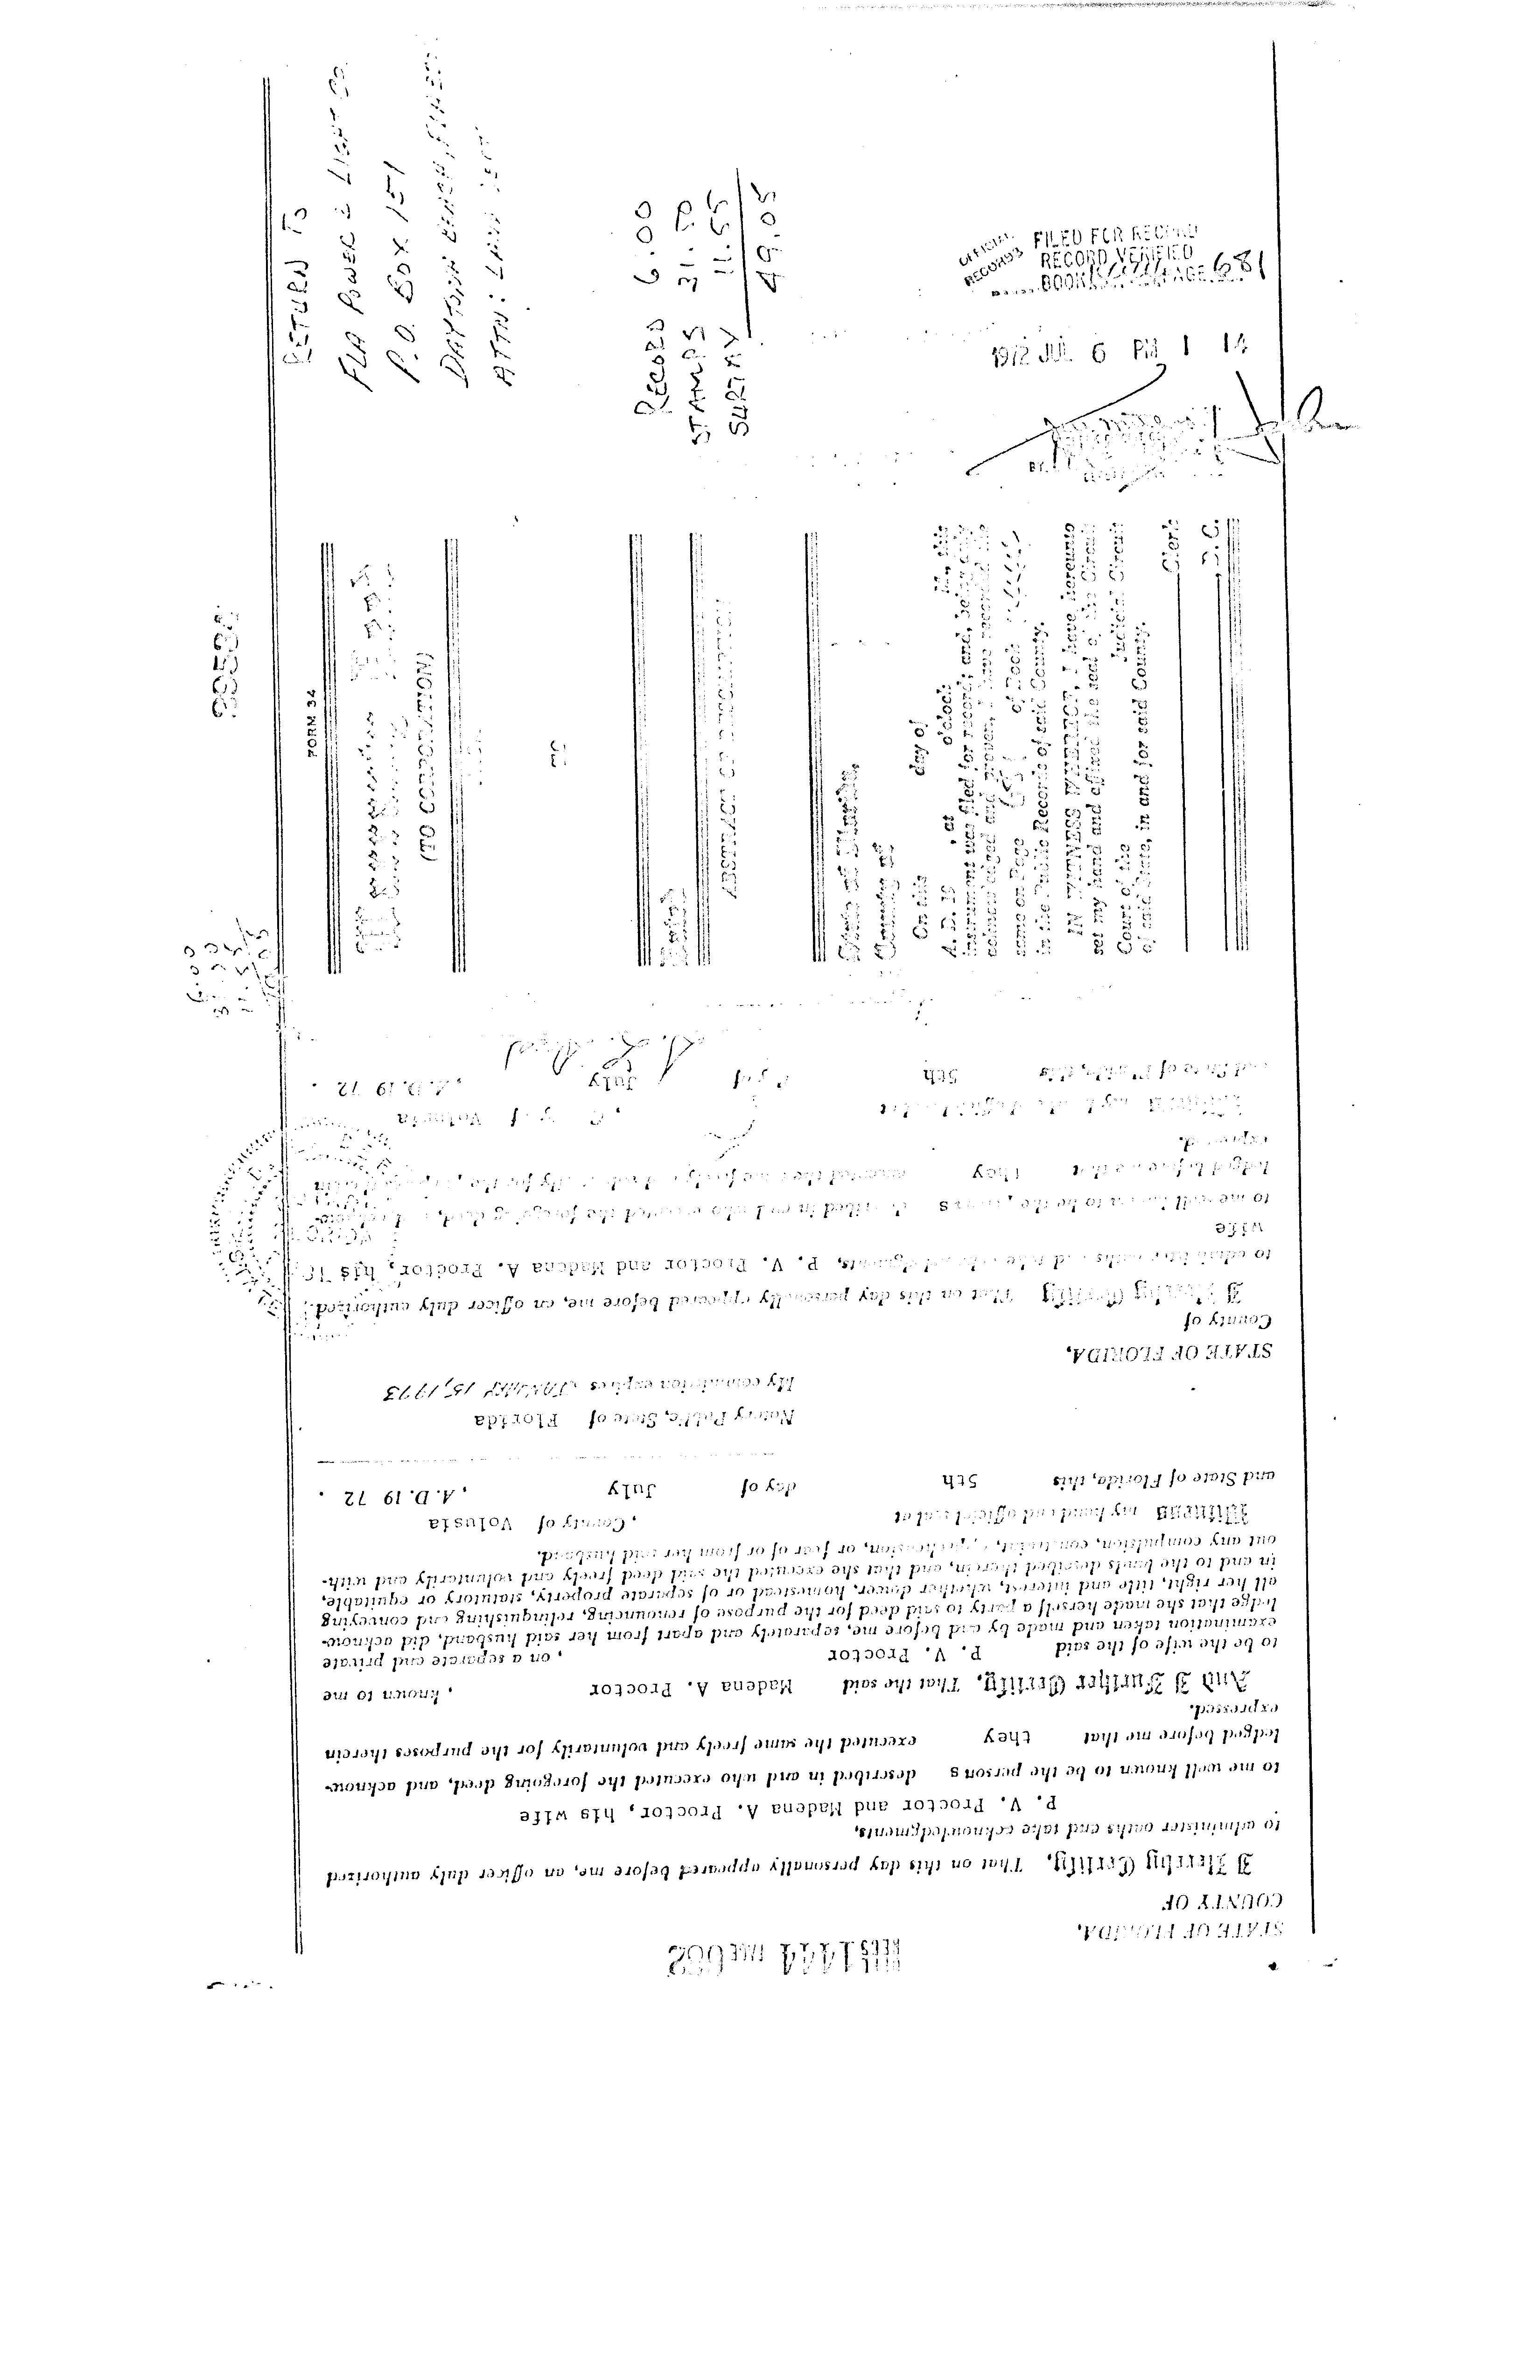 STATE OF FLORIDA,
COUNTY OF
I Hereby Certify, That on this day personally appeared before me, an officer duly authorized
to administer oaths and take acknowledgments,
P. V. Proctor and Madena A. Proctor, his wife
to me well known to be the persons described in and who executed the foregoing deed, and acknow-
ledged before me that they executed the same freely and voluntarily for the purposes therein
expressed.
And I Further Certify, That the said Madena A. Proctor , known to me
to be the wife of the said P. V. Proctor , on a separate and private
examination taken and made by and before me, separately and apart from her said husband, did acknow-
ledge that she made herself a party to said deed for the purpose of renouncing, relinquishing and conveying
all her right, title and interest, whether dower, homestead or of separate property, statutory or equitable,
in and to the lands described therein, and that she executed the said deed freely and voluntarily and with-
out any compulsion, constraint, apprehension, or fear of or from her said husband.
Witness my hand and official seal at , County of Volusia
and State of Florida, this 5th day of July , A.D. 19 72 .
Notary Public, State of Florida
My commission expires JANUARY 15, 1973
STATE OF FLORIDA,
County of
I Hereby Certify That on this day personally appeared before me, an officer duly authorized
to administer oaths and take acknowledgments, P. V. Proctor and Madena A. Proctor, his
wife
to me well known to be the persons described in and who executed the foregoing deed, and acknow-
ledged before me that they executed the same freely and voluntarily for the purposes therein
expressed.
Witness my hand and official seal at , County of Volusia
and State of Florida, this 5th day of July , A.D. 19 72 .
FORM 34
(TO CORPORATION)
ABSTRACT OF DESCRIPTION
State of Florida,
County of
On this day of
A. D. 19 , at o'clock
instrument was filed for record, and, being
acknowledged and proven, I have recorded the
same on Page 681 of Book
in the Public Records of said County.
IN WITNESS WHEREOF, I have hereunto
set my hand and affixed the seal of the Circuit
Court of the Judicial Circuit
of said State, in and for said County.
Clerk
D. C.
RETURN TO
FLA POWER & LIGHT CO.
P.O. BOX 151
DAYTONA BEACH, FLA
ATTN: LAND
RECORD 6.00
STAMPS
SURTAX 11.55
49.05
OFFICIAL RECORDS
FILED FOR RECORD
RECORD VERIFIED
BOOK PAGE 681
1972 JUL 6 PM 1 14